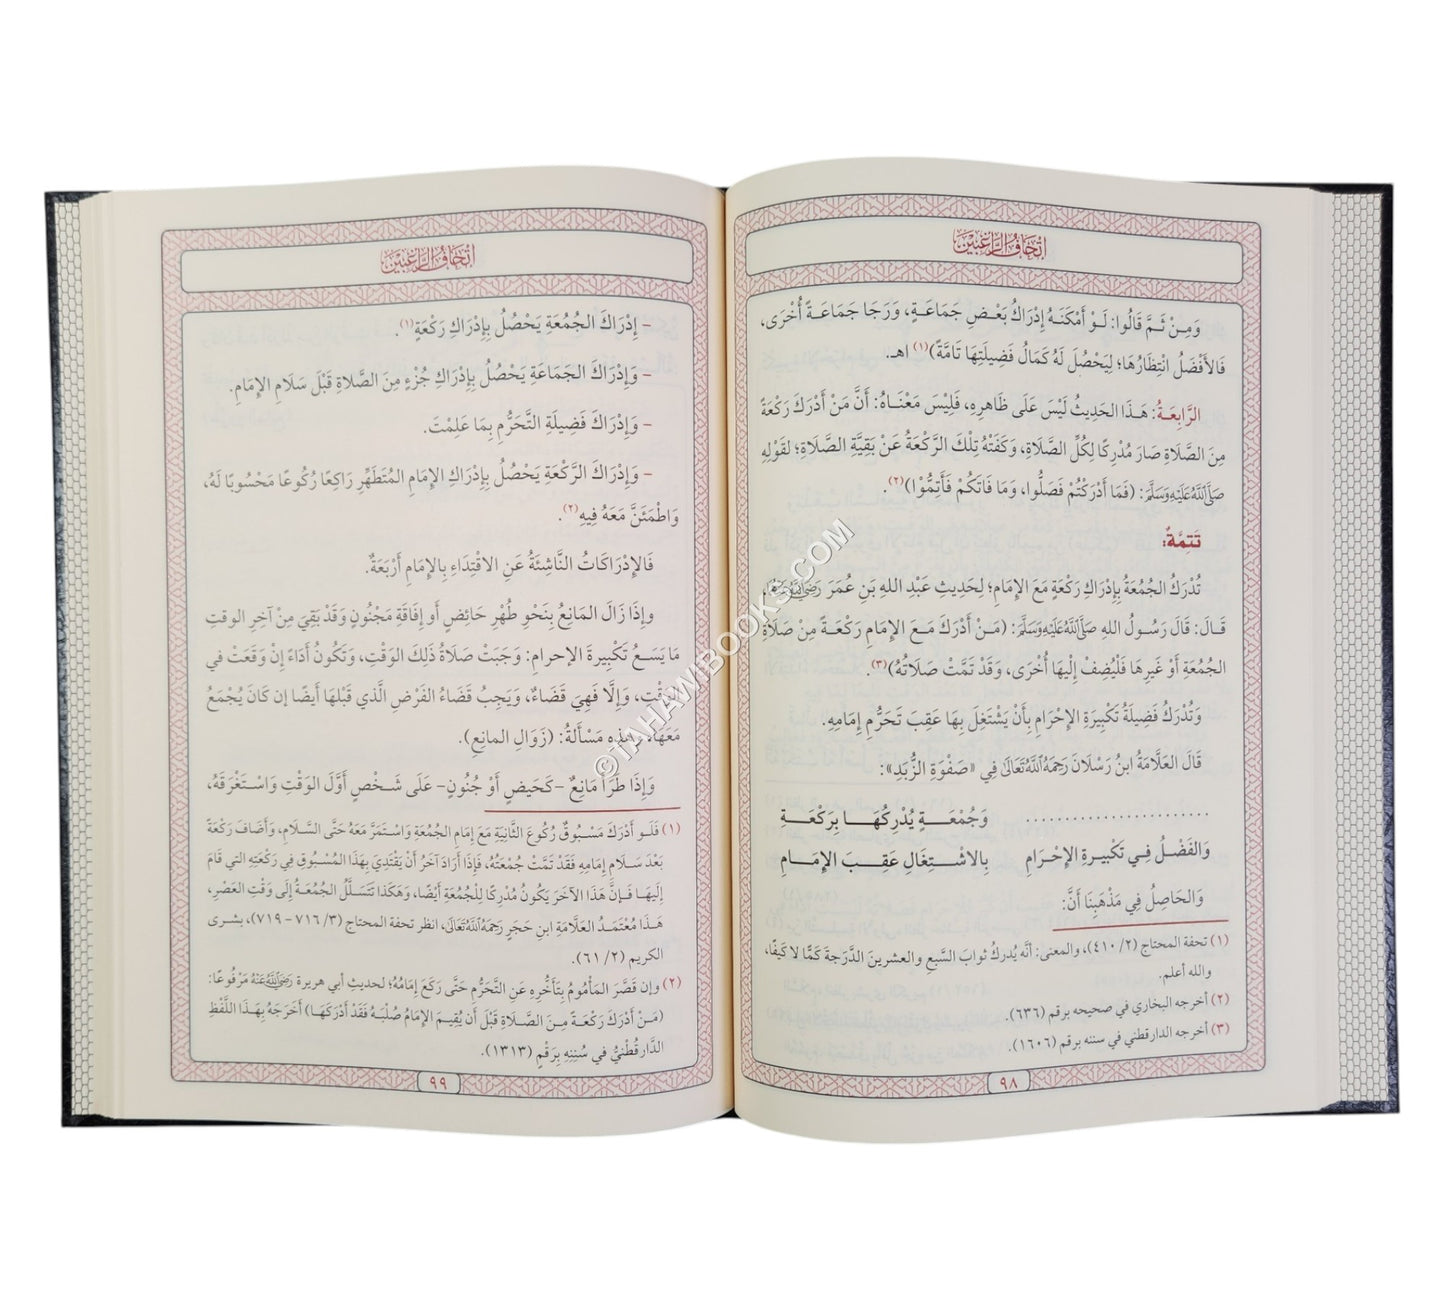 إتحاف الراغبين
وَمِنْ ثَمَّ قَالُوا: لَوْ أَمْكَنَهُ إِدْرَاكُ بَعْضِ جَمَاعَةٍ، وَرَجَا جَمَاعَةً أُخْرَى،
فَالأَفْضَلُ انْتِظَارُهَا؛ لِيَحْصُلَ لَهُ كَمَالُ فَضِيلَتِهَا تَامَّةً)(١) اهـ.
الرَّابِعَةُ: هَذَا الحَدِيثُ لَيْسَ عَلَى ظَاهِرِهِ، فَلِيْسَ مَعْنَاهُ: أَنَّ مَنْ أَدْرَكَ رَكْعَةً
مِنَ الصَّلَاةِ صَارَ مُدْرِكًا لِكُلِّ الصَّلَاةِ، وَكَفَتْهُ تِلْكَ الرَّكْعَةُ عَنْ بَقِيَّةِ الصَّلَاةِ؛ لقَوْلِهِ
صَلَّى اللَّهُ عَلَيْهِ وَسَلَّمَ: (فَمَا أَدْرَكْتُمْ فَصَلُّوا، وَمَا فَاتَكُمْ فَأَتِمُّوْا)(٢).
تَتِمَّةٌ:
تُدْرَكُ الجُمُعَةُ بِإِدْرَاكِ رَكْعَةٍ مَعَ الإِمَامِ؛ لِحَدِيثِ عَبْدِ اللهِ بَنِ عُمَرَ رَضِيَ اللَّهُ عَنْهُمَا،
قَـالَ: قَالَ رَسُولُ اللهِ صَلَّى اللَّهُ عَلَيْهِ وَسَلَّمَ: (مَنْ أَدْرَكَ مَعَ الإِمَامِ رَكْعَةً مِنْ صَلَاةِ
الجُمُعَةِ أَوْ غَيرِهَا فَلْيُضِفْ إِلَيهَا أُخْرَى، وَقَدْ تَمَّتْ صَلَاتُهُ)(٣).
وَتُدْرَكُ فَضِيلَةُ تَكْبِيرَةِ الإِحْرَامِ بِأَنْ يَشْتَغِلَ بِهَا عَقِبَ تَحَرُّمِ إِمَامِهِ.
قَالَ العَلَّامَةُ ابنُ رَسْلَانَ رَحِمَهُ اللَّهُ تَعَالَى فِي «صَفْوَةِ الزُّبَدِ»:
........................ وَجُمْعَـةٍ يُدْرِكُهَـا بِرَكْعَـةِ
وَالفَضْـلُ فِي تَكْبِيرةِ الإِحْـرَامِ بِالاشْـتِغَالِ عَقِـبَ الإِمَـامِ
وَالحَاصِلُ فِي مَذْهَبِنَا أَنَّ:
(١) تحفة المحتاج (٢/ ٤١٠)، والمعنى: أنَّه يُدركُ ثوابَ السَّبعِ والعشرينَ الدَّرجةَ كَمًّا لا كَيفًا،
والله أعلم.
(٢) أخرجه البخاري في صحيحه برقم (٦٣٦).
(٣) أخرجه الدارقطني في سننه برقم (١٦٠٦).
٩٨
إتحاف الراغبين
- إِدْرَاكَ الجُمُعَةِ يَحْصُلُ بِإِدْرَاكِ رَكْعَةٍ(١).
- وَإِدْرَاكَ الجَمَاعَةِ يَحْصُلُ بِإِدْرَاكِ جُزْءٍ مِنَ الصَّلَاةِ قَبْلَ سَلَامِ الإِمَامِ.
- وَإِدْرَاكَ فَضِيلَةِ التَّحَرُّمِ بِمَا عَلِمْتَ.
- وَإِدْرَاكَ الرَّكْعَةِ يَحْصُلُ بِإِدْرَاكِ الإِمَامِ المُتَطَهِّرِ رَاكِعًا رُكُوعًا مَحْسُوبًا لَهُ،
وَاطْمَئَنَّ مَعَهُ فِيهِ(٢).
فَالإِدْرَاكَاتُ النَّاشِئَةُ عَنِ الاقْتِدَاءِ بِالإِمَامِ أَرْبَعَةٌ.
وإِذَا زَالَ المَانِعُ بِنَحْوِ طُهْرِ حَائِضٍ أَو إِفَاقَةِ مَجْنُونٍ وَقَدْ بَقِيَ مِنْ آخِرِ الوقتِ
مَا يَسَعُ تَكْبِيرَةَ الإحرامِ: وَجَبَتْ صَلَاةُ ذَلِكَ الوَقْتِ، وَتَكُونُ أَدَاءً إِنْ وَقَعَتْ في
الوَقْتِ، وَإِلَّا فَهِيَ قَضَاءٌ، وَيَجِبُ قَضَاءُ الفَرْضِ الَّذي قَبْلَهَا أَيضًا إن كَانَ يُجْمَعُ
مَعَهَا، وهذه مَسْأَلَةُ: (زَوَالِ المانِعِ).
وإِذَا طَرَأَ مَانِعٌ -كَحَيضٍ أَوْ جُنُونٍ- عَلَى شَخْصٍ أَوَّلَ الوَقْتِ وَاسْتَغْرَقَهُ،
(١) فَلَو أَدْرَكَ مَسْبُوقٌ رُكُوعَ الثَّانِيَةِ مَعَ إِمَامِ الجُمُعَةِ وَاسْتَمَرَّ مَعَهُ حَتَّى السَّلَامِ، وَأَضَافَ رَكْعَةً
بَعْدَ سَلَامِ إِمَامِهِ فَقَدْ تَمَّتْ جُمُعَتُهُ، فَإِذَا أَرَادَ آخَرُ أَنْ يَقْتَدِيَ بِهَذَا المَسْبُوقِ فِي رَكْعَتِهِ التي قَامَ
إِلَيهَا فَإِنَّ هَذَا الآخَرَ يَكُونُ مُدْرِكًا لِلجُمُعَةِ أَيْضًا، وَهَكَذَا تَتَسَلَّلُ الجُمُعَةُ إِلَى وَقْتِ العَصْرِ،
هَذَا مُعْتَمَدُ العَلَّامَةِ ابنِ حَجَرٍ رَحِمَهُ اللَّهُ تَعَالَى، انظر تحفة المحتاج (٣/ ٧١٦ - ٧١٩)، بشرى
الكريم (٢/ ٦١).
(٢) وإن قَصَّرَ المَأْمُومُ بِتَأَخُّرِهِ عَنِ التَّحَرُّمِ حَتَّى رَكَعَ إِمَامُهُ؛ لحديثِ أبي هريرة رَضِيَ اللَّهُ عَنْهُ مَرْفُوعًا:
(مَنْ أَدْرَكَ رَكْعَةً مِنَ الصَّلَاةِ قَبْلَ أَن يُقِيمَ الإِمَامُ صُلْبَهُ فَقَدْ أَدْرَكَهَا) أَخرَجَهُ بِهَذَا اللَّفْظِ
الدَّارقُطْنيُّ في سُننِهِ بِرَقْمِ (١٣١٣).
٩٩
©TAHAWIBOOKS.COM